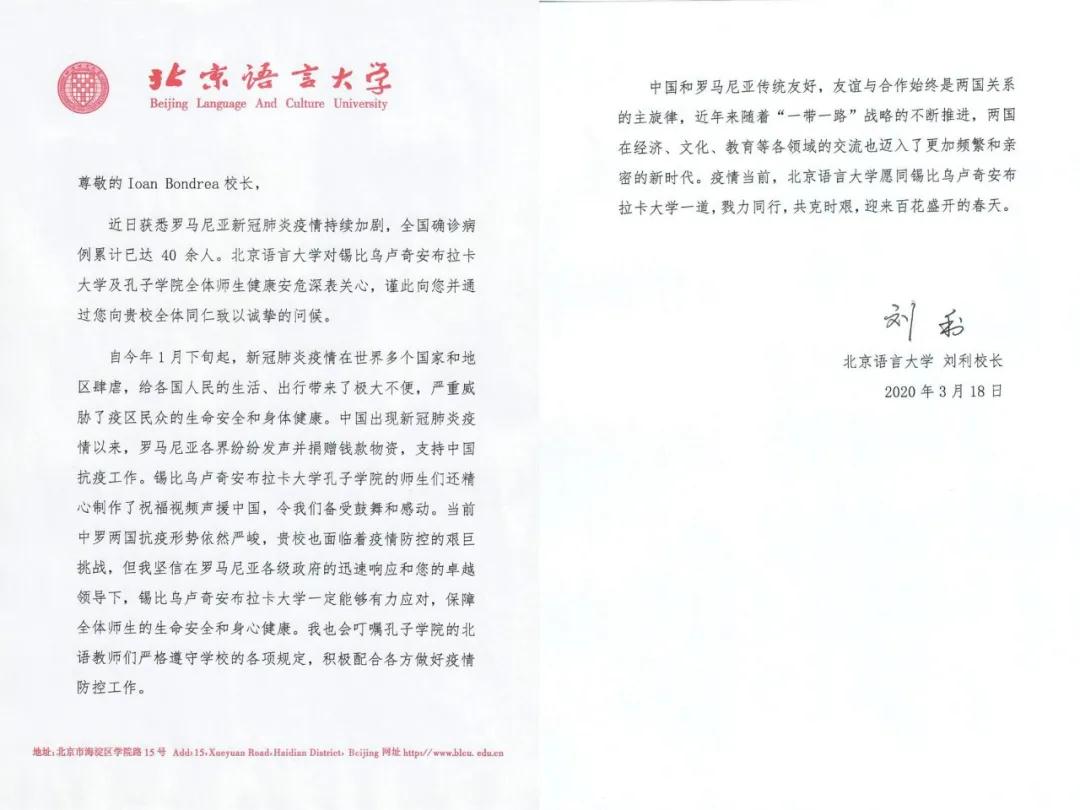 北京语言大学
Beijing Language And Culture University
尊敬的 Ioan Bondrea 校长，
近日获悉罗马尼亚新冠肺炎疫情持续加剧，全国确诊病
例累计已达 40 余人。北京语言大学对锡比乌卢奇安布拉卡
大学及孔子学院全体师生健康安危深表关心，谨此向您并通
过您向贵校全体同仁致以诚挚的问候。
自今年 1 月下旬起，新冠肺炎疫情在世界多个国家和地
区肆虐，给各国人民的生活、出行带来了极大不便，严重威
胁了疫区民众的生命安全和身体健康。中国出现新冠肺炎疫
情以来，罗马尼亚各界纷纷发声并捐赠钱款物资，支持中国
抗疫工作。锡比乌卢奇安布拉卡大学孔子学院的师生们还精
心制作了祝福视频声援中国，令我们备受鼓舞和感动。当前
中罗两国抗疫形势依然严峻，贵校也面临着疫情防控的艰巨
挑战，但我坚信在罗马尼亚各级政府的迅速响应和您的卓越
领导下，锡比乌卢奇安布拉卡大学一定能够有力应对，保障
全体师生的生命安全和身心健康。我也会叮嘱孔子学院的北
语教师们严格遵守学校的各项规定，积极配合各方做好疫情
防控工作。
地址：北京市海淀区学院路 15 号 Add：15，Xueyuan Road，Haidian District，Beijing 网址 http://www.blcu.edu.cn
中国和罗马尼亚传统友好，友谊与合作始终是两国关系
的主旋律，近年来随着“一带一路”战略的不断推进，两国
在经济、文化、教育等各领域的交流也迈入了更加频繁和亲
密的新时代。疫情当前，北京语言大学愿同锡比乌卢奇安布
拉卡大学一道，戮力同行，共克时艰，迎来百花盛开的春天。
刘利
北京语言大学 刘利校长
2020 年 3 月 18 日